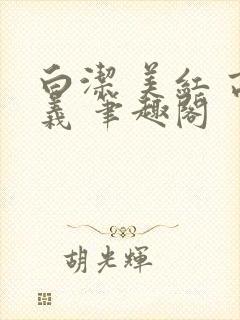 白潔 美紅 高
義 筆趣閣
胡光輝